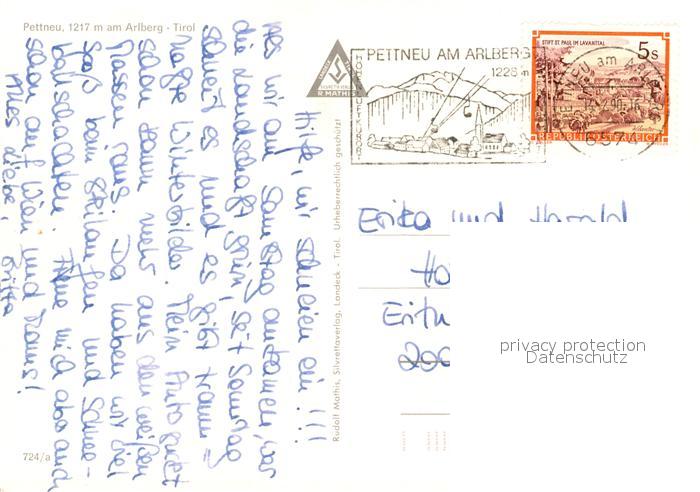 Pettneu, 1217 m am Arlberg - Tirol
Hilfe, wir schneien ein !!!
Als wir am Samstag ankamen, war
die Landschaft grün, seit Samstag
schneit es und es gibt traum-
hafte Winterbilder. Mein Auto guckt
schon kaum mehr aus den weißen
Massen raus. Da haben wir viel
Spaß beim Skilaufen und Schnee-
ballschlachten. Freue mich aber auch
schon auf Wien und Hans!
Alles Liebe,
Britta
724/a
Rudolf Mathis, Silvrettaverlag, Landeck - Tirol. Urheberrechtlich geschützt!
R MATHIS
PETTNEU AM ARLBERG
1228 m
STIFT ST. PAUL IM LAVANTTAL
5 s
REPUBLIK ÖSTERREICH
Erika und Harald
Ho
200
privacy protection
Datenschutz